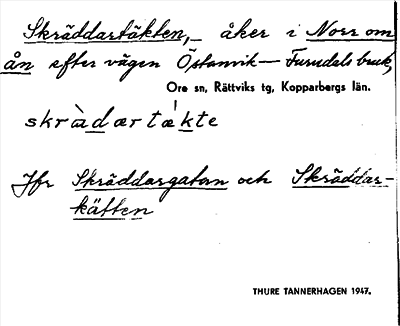 Skräddartäkten, åker i Norr om
ån efter vägen Östanvik — Furudals bruk,
Ore sn, Rättviks tg, Kopparbergs län.
skràdærtækte
Jfr Skräddargatan och Skräddar-
kätten
THURE TANNERHAGEN 1947.